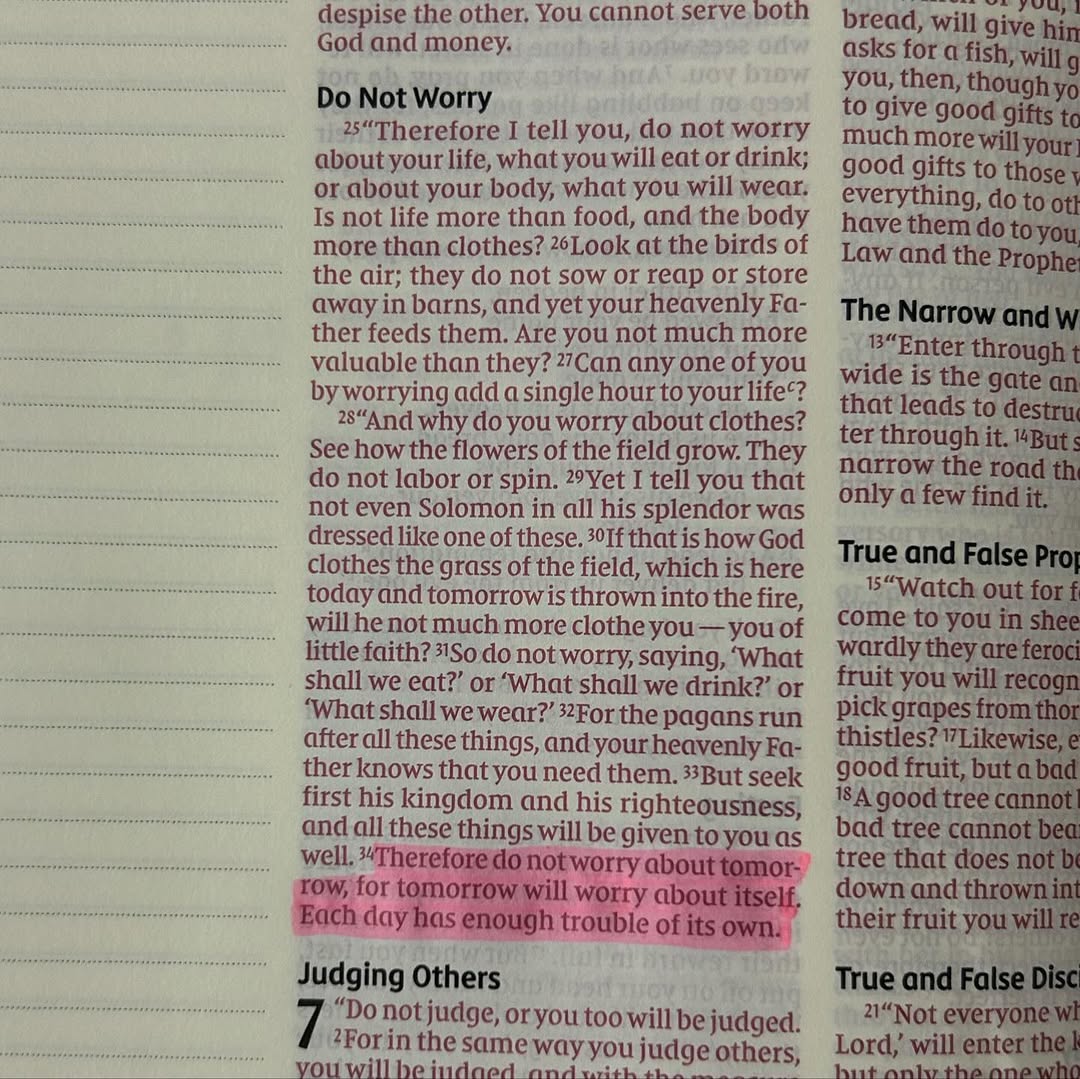 despise the other. You cannot serve both
God and money.
Do Not Worry
25“Therefore I tell you, do not worry
about your life, what you will eat or drink;
or about your body, what you will wear.
Is not life more than food, and the body
more than clothes? 26Look at the birds of
the air; they do not sow or reap or store
away in barns, and yet your heavenly Fa-
ther feeds them. Are you not much more
valuable than they? 27Can any one of you
by worrying add a single hour to your lifeᶜ?
28“And why do you worry about clothes?
See how the flowers of the field grow. They
do not labor or spin. 29Yet I tell you that
not even Solomon in all his splendor was
dressed like one of these. 30If that is how God
clothes the grass of the field, which is here
today and tomorrow is thrown into the fire,
will he not much more clothe you — you of
little faith? 31So do not worry, saying, ‘What
shall we eat?’ or ‘What shall we drink?’ or
‘What shall we wear?’ 32For the pagans run
after all these things, and your heavenly Fa-
ther knows that you need them. 33But seek
first his kingdom and his righteousness,
and all these things will be given to you as
well. 34Therefore do not worry about tomor-
row, for tomorrow will worry about itself.
Each day has enough trouble of its own.
Judging Others
7 “Do not judge, or you too will be judged.
2For in the same way you judge others,
you will be judged, and with the measure
bread, will give him
asks for a fish, will g
you, then, though yo
to give good gifts to
much more will your
good gifts to those
everything, do to oth
have them do to you,
Law and the Prophe
The Narrow and W
13“Enter through t
wide is the gate an
that leads to destruc
ter through it. 14But s
narrow the road tha
only a few find it.
True and False Prop
15“Watch out for f
come to you in shee
wardly they are feroci
fruit you will recogn
pick grapes from thor
thistles? 17Likewise, e
good fruit, but a bad
18A good tree cannot
bad tree cannot bea
tree that does not be
down and thrown int
their fruit you will re
True and False Disci
21“Not everyone wh
Lord,’ will enter the k
but only the one who